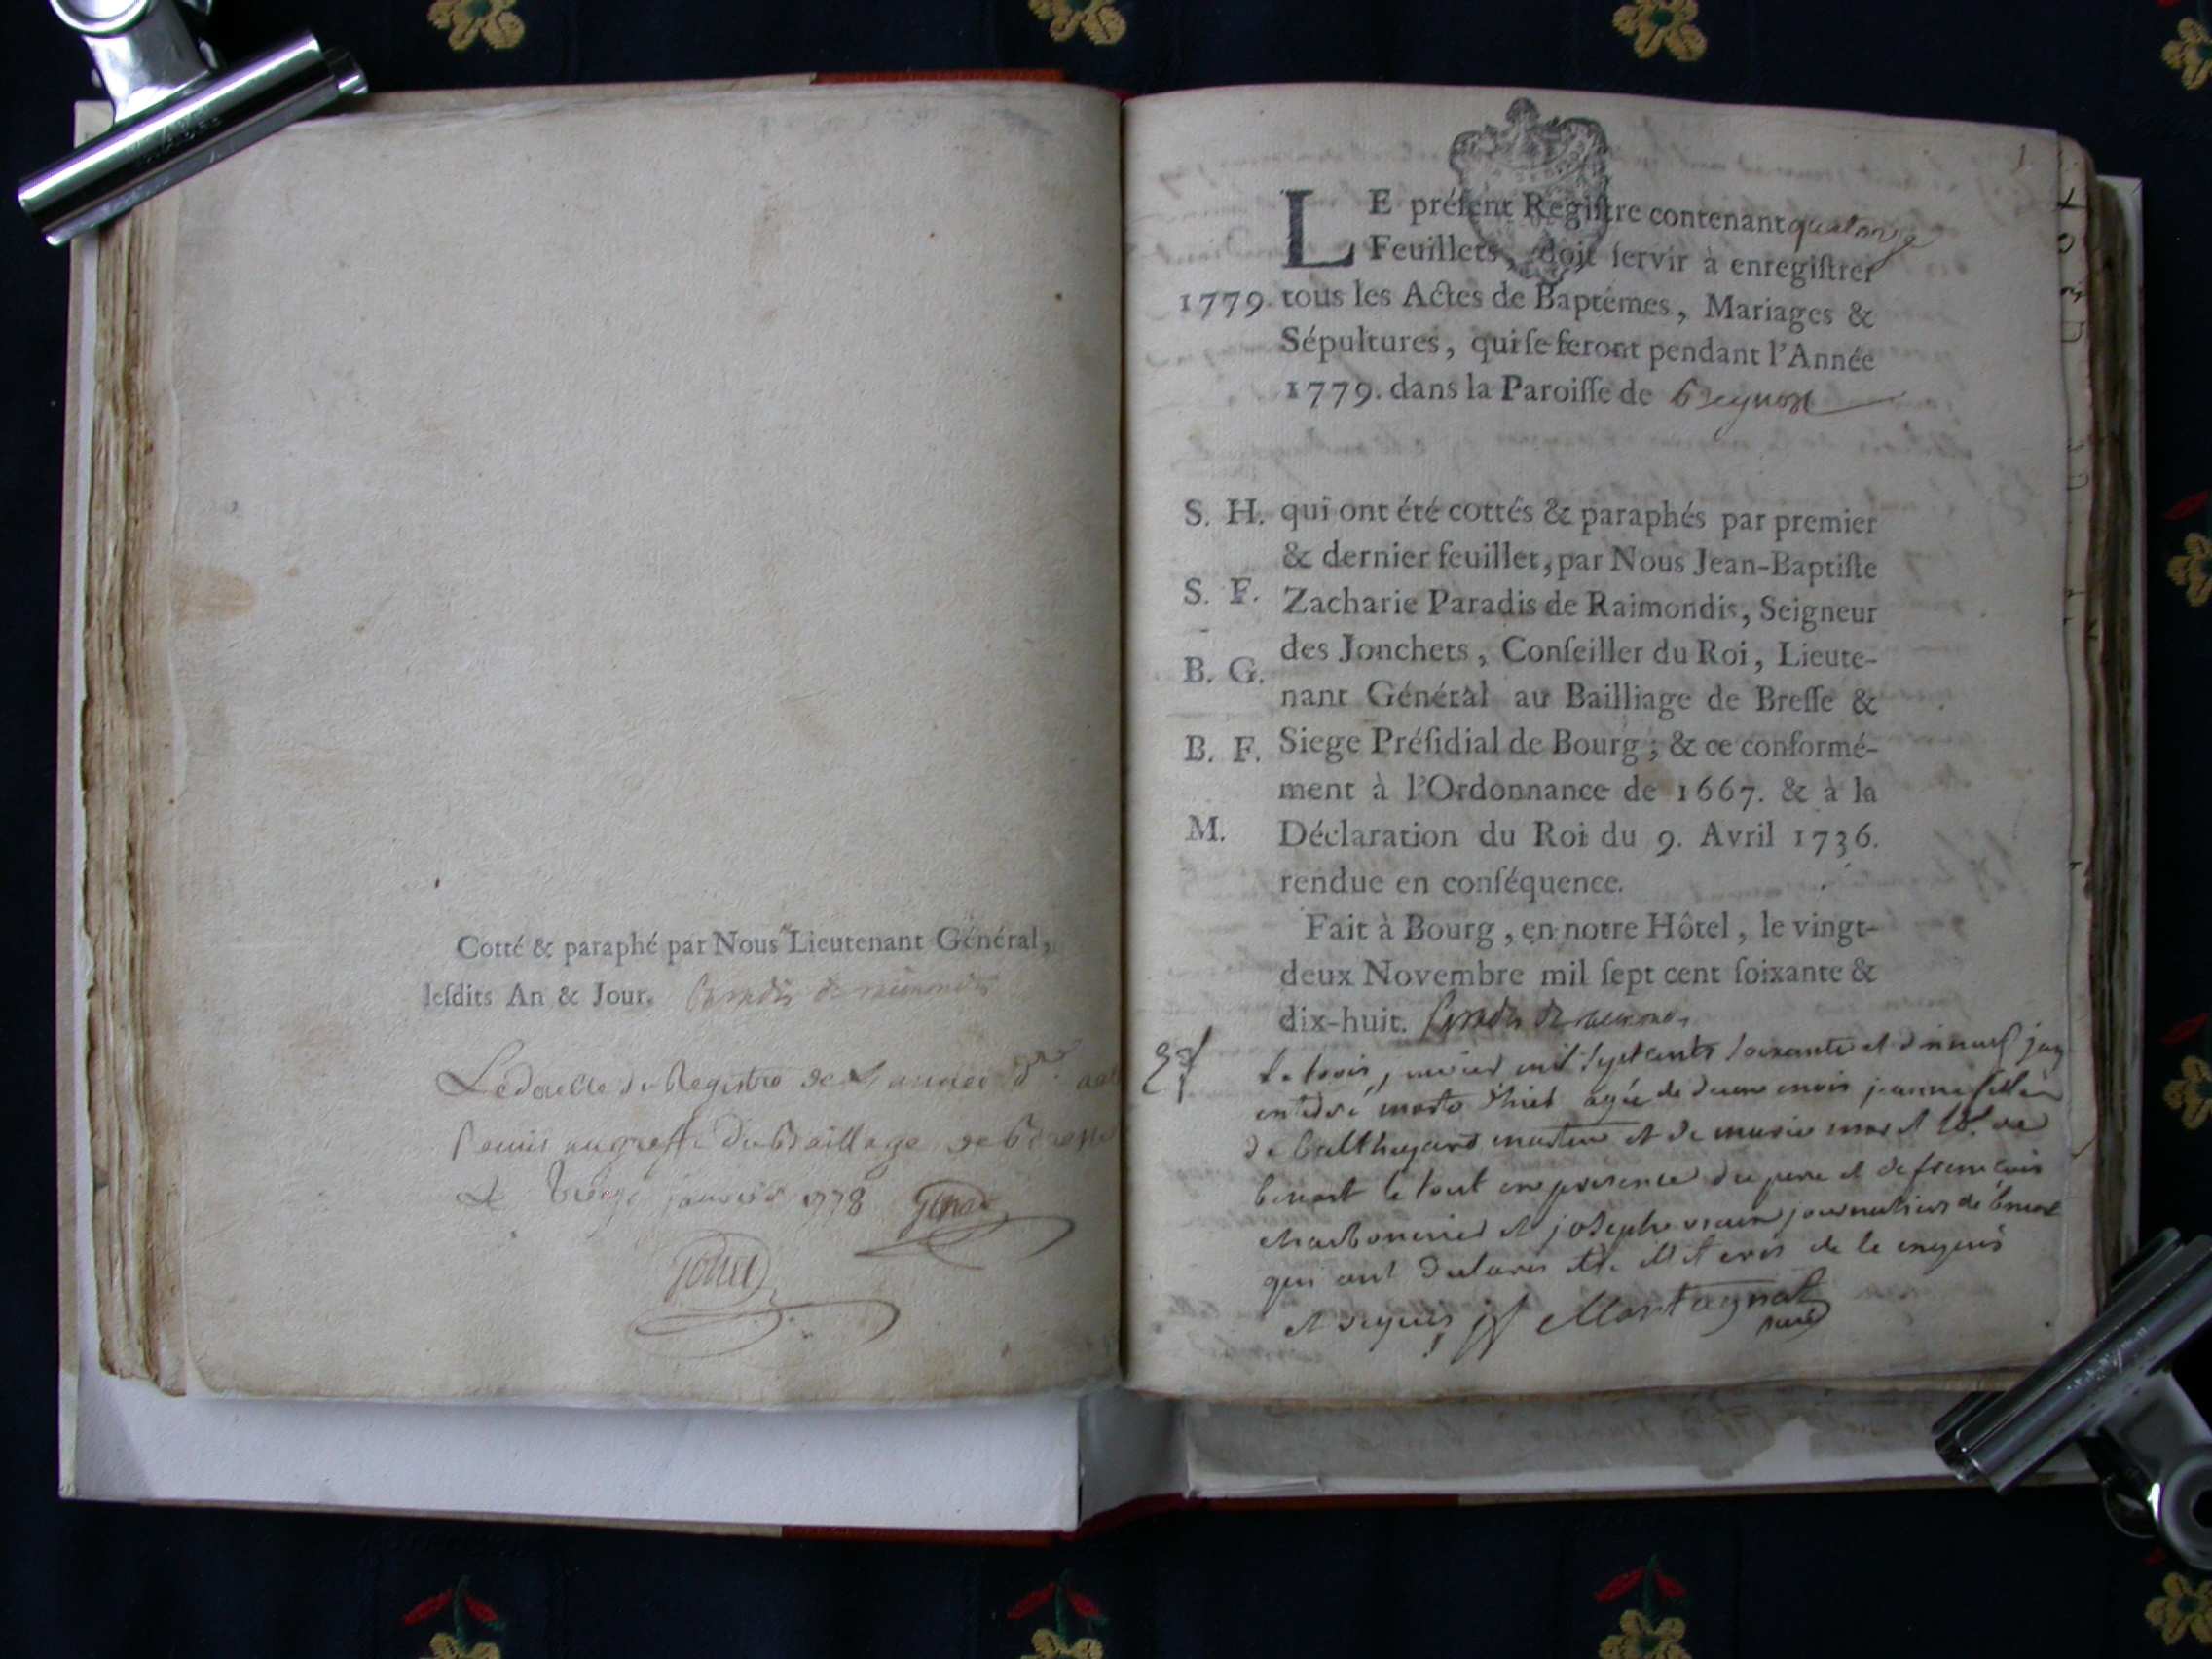 Cotté & paraphé par Nous Lieutenant Général,
lesdits An & Jour. Paradis de raimondis
Le double du Registre de L'année
Remis au greffe du Bailliage de Bresse
janvier 1778
1
LE préſent Regiſtre contenant quatorze
Feuillets, doit ſervir à enregiſtrer
1779. tous les Actes de Baptêmes, Mariages &
Sépultures, qui ſe feront pendant l'Année
1779. dans la Paroiſſe de
S. H. qui ont été cottés & paraphés par premier
& dernier feuillet, par Nous Jean-Baptiſte
S. F. Zacharie Paradis de Raimondis, Seigneur
des Jonchets, Conſeiller du Roi, Lieute-
B. G. nant Général au Bailliage de Breſſe &
B. F. Siege Préſidial de Bourg; & ce conformé-
ment à l'Ordonnance de 1667. & à la
M. Déclaration du Roi du 9. Avril 1736.
rendue en conſéquence.
Fait à Bourg, en notre Hôtel, le vingt-
deux Novembre mil ſept cent ſoixante &
dix-huit. Paradis de raimondis
Le trois janvier mil sept cents soixante et dix neuf j'ay
enterré agée de deux mois jeanne fille
de et de marie
le tout en presence du pere et de francois
charbonnier et joseph journaliers de
qui ont de le enquis
et requis Montagnat
curé